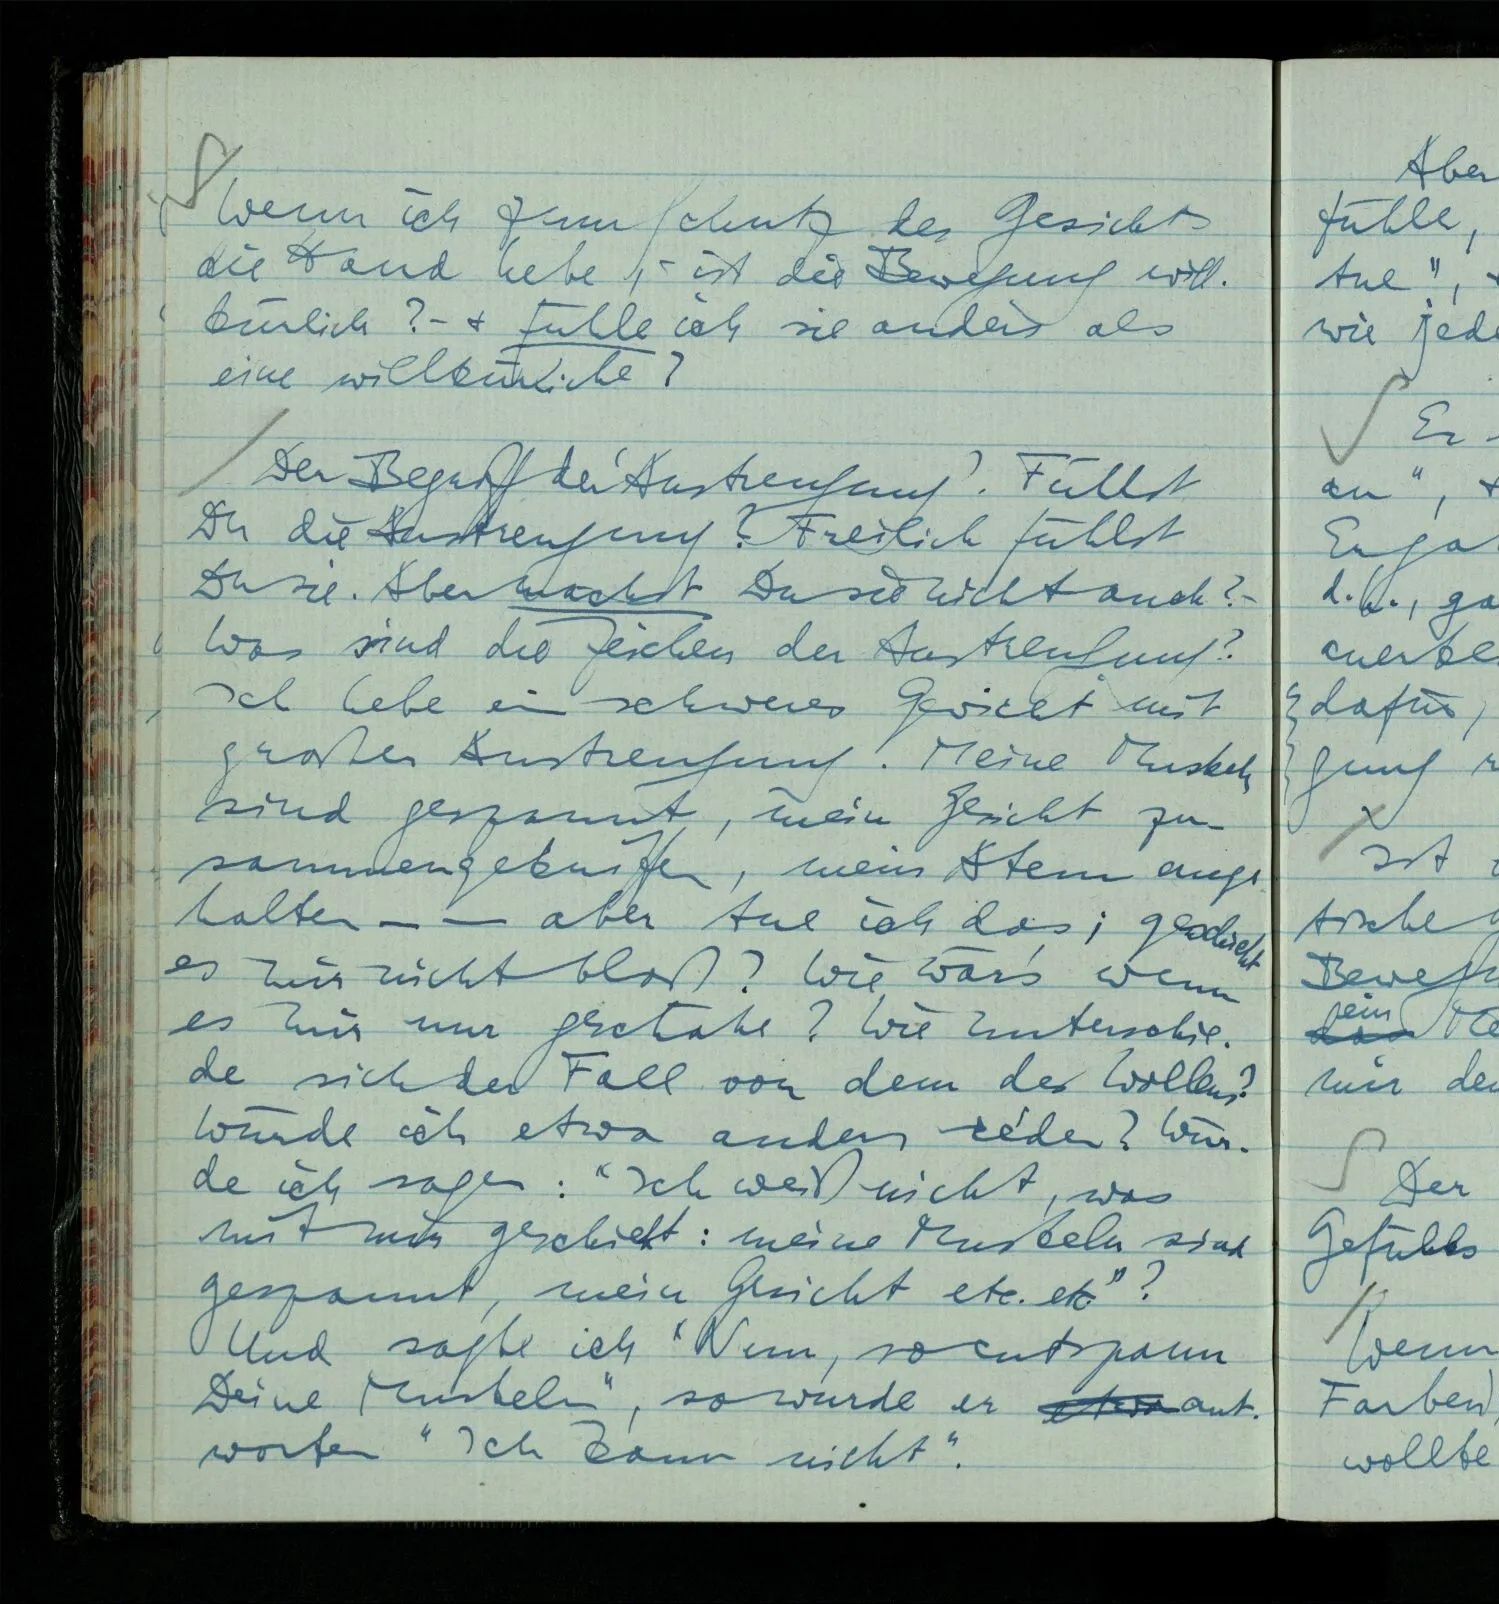 Wenn ich zum Schutz des Gesichts
die Hand hebe, – ist die Bewegung will-
kürlich? – & fühle ich sie anders als
eine willkürliche?
Der Begriff der 'Anstrengung'. Fühlst
Du die Anstrengung? Freilich fühlst
Du sie. Aber machst Du sie nicht auch? –
Was sind die Zeichen der Anstrengung?
Ich hebe ein schweres Gewicht mit
großer Anstrengung. Meine Muskeln
sind gespannt, mein Gesicht zu-
sammengekniffen, mein Atem ange-
halten – – aber tue ich das; geschieht
es mir nicht bloß? Wie wär's wenn
es mir nur geschähe? Wie unterschie-
de sich der Fall von dem des Wollens?
Würde ich etwa anders reden? Wür-
de ich sagen: "Ich weiß nicht, was
mit mir geschieht: meine Muskeln sind
gespannt, mein Gesicht etc. etc"?
Und sagte ich "Nun, so entspann
Deine Muskeln", so würde er etwa ant-
worten "Ich kann nicht".
Aber
fühle,
tue", &
wie jede
Er
an", &
d.h.,
dafür,
gung
Ist
tische
sein
das
mir den
Der
Gefühls
Wenn
Farben
wollte